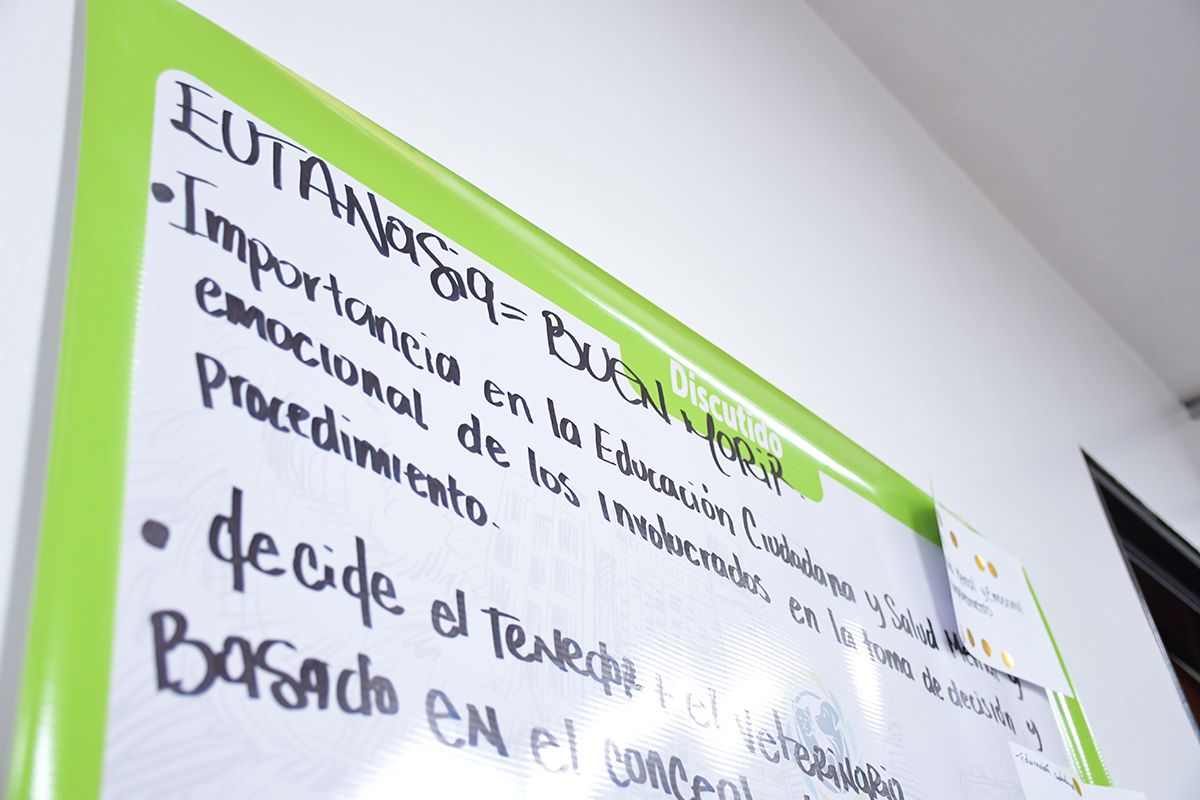 EUTANASia = BUEN MORIR.
Discutido
• Importancia en la Educación Ciudadana y Salud Mental y
emocional de los involucrados en la toma de decisión y
Procedimiento.
• decide el TENEdor + el VeteRiNaRio
Basado en el concep